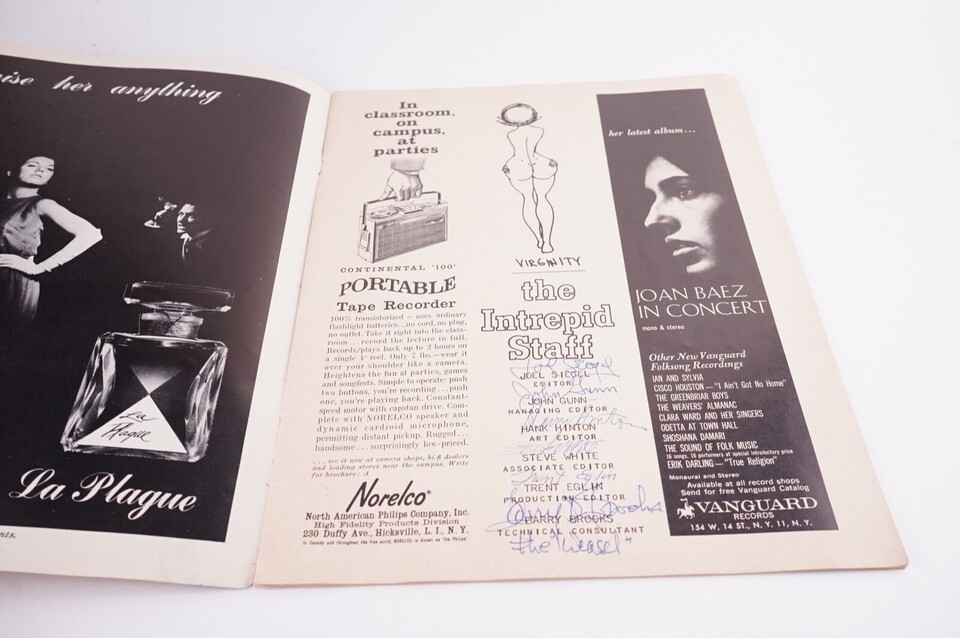 ise her anything
La
Plague
La Plague
nts.
In
classroom,
on
campus,
at
parties
CONTINENTAL '100'
PORTABLE
Tape Recorder
100% transistorized — uses ordinary
flashlight batteries...no cord, no plug,
no outlet. Take it right into the class-
room...record the lecture in full.
Records/plays back up to 2 hours on
a single 4" reel. Only 7 lbs.—wear it
over your shoulder like a camera.
Heightens the fun at parties, games
and songfests. Simple to operate: push
two buttons, you're recording...push
one, you're playing back. Constant-
speed motor with capstan drive. Com-
plete with NORELCO speaker and
dynamic cardioid microphone,
permitting distant pickup. Rugged...
handsome...surprisingly low-priced.
... see it now at camera shops, hi-fi dealers
and leading stores near the campus. Write
for brochure: A
Norelco®
North American Philips Company, Inc.
High Fidelity Products Division
230 Duffy Ave., Hicksville, L. I., N. Y.
In Canada and throughout the free world, NORELCO is known as 'the Philips'.
VIRGINITY
the
Intrepid
Staff
Joel Siegel
JOEL SIEGEL
EDITOR
John Gunn
JOHN GUNN
MANAGING EDITOR
Hinton
HANK HINTON
ART EDITOR
STEVE WHITE
ASSOCIATE EDITOR
Trent Eglin
TRENT EGLIN
PRODUCTION EDITOR
Brooks
BARRY BROOKS
TECHNICAL CONSULTANT
The "Weasel"
her latest album...
JOAN BAEZ
IN CONCERT
mono & stereo
Other New Vanguard
Folksong Recordings
IAN AND SYLVIA
CISCO HOUSTON—"I Ain't Got No Home"
THE GREENBRIAR BOYS
THE WEAVERS' ALMANAC
CLARA WARD AND HER SINGERS
ODETTA AT TOWN HALL
SHOSHANA DAMARI
THE SOUND OF FOLK MUSIC
16 songs, 16 performers at special introductory price
ERIK DARLING—"True Religion"
Monaural and Stereo
Available at all record shops
Send for free Vanguard Catalog
VANGUARD
RECORDS
154 W. 14 ST., N.Y. 11, N.Y.